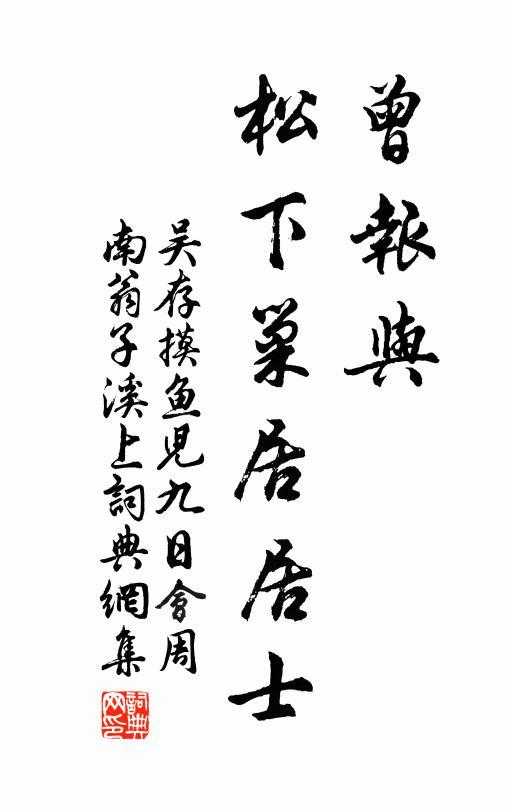 曾報與
松下巢居居士
吴存摸鱼児九日會周
南翁子溪上詞典網集
詞典网印